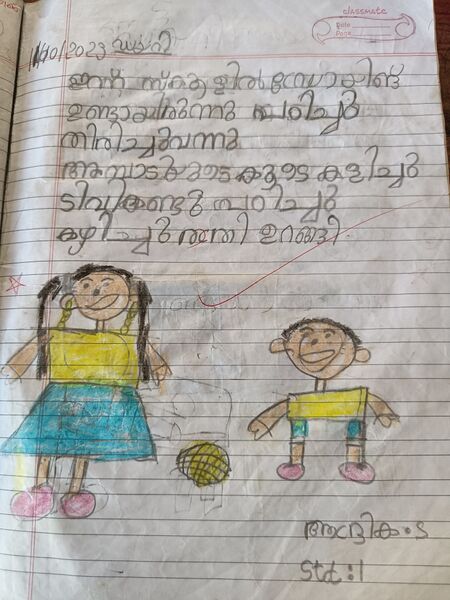 classmate
Date
Page
11/10/2023 ഡയറി
ഇന്ന് സ്കൂളിൽ സ്പോക്കിങ്ങ്
ഉണ്ടായിരുന്നു പഠിച്ചും
തിരിച്ചുവന്നു
അമ്പാടിയുടെ കൂടെ കളിച്ചു
ടിവി കണ്ടു പഠിച്ചും
കഴിച്ചും ഉറങ്ങി
Std : 1